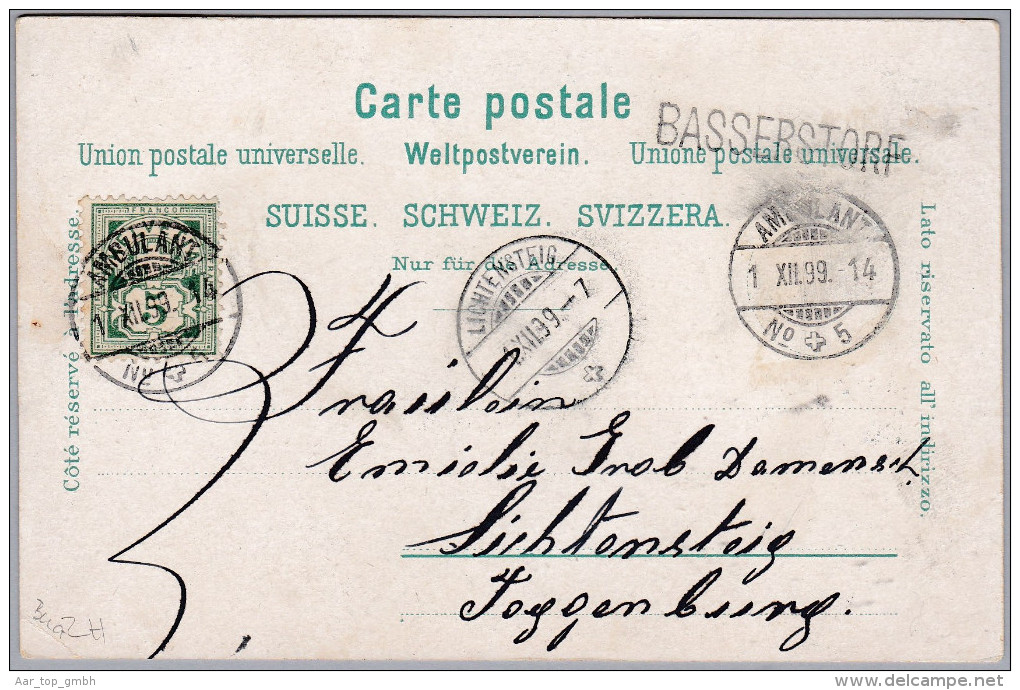 Carte postale
BASSERSTORF
Union postale universelle. Weltpostverein. Unione postale universale.
SUISSE. SCHWEIZ. SVIZZERA.
Nur für die Adresse
Côté réservé à l'adresse.
Lato riservato all' indirizzo.
FRANCO
AMBULANT
1 XII.99.-14
No 5
LICHTENSTEIG
XII.99.-7
AMBULANT
1 XII.99.-14
No 5
Fräulein
Emielie Grob Damensch.
Lichtensteig
Toggenburg.
Aar_top_gmbh
delcampe.net